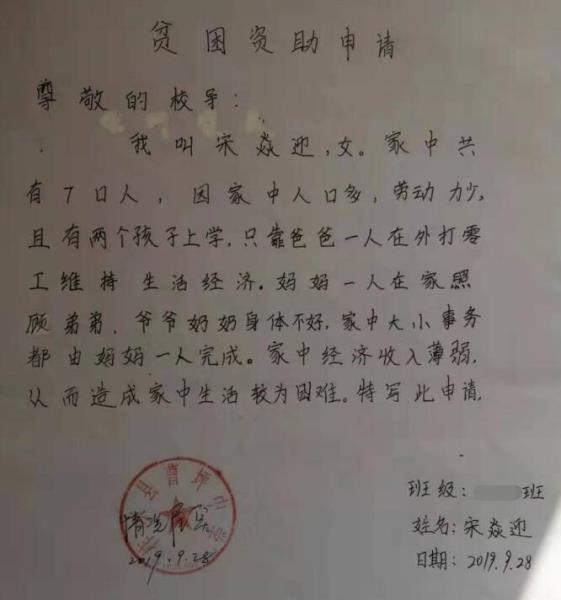 贫困资助申请
尊敬的校导：
我叫宋焱迎，女。家中共
有7口人，因家中人口多，劳动力少，
且有两个孩子上学，只靠爸爸一人在外打零
工维持生活经济。妈妈一人在家照
顾弟弟、爷爷奶奶身体不好，家中大小事务
都由妈妈一人完成。家中经济收入薄弱，
从而造成家中生活较为困难。特写此申请，
县曹坪中
情况属实
2019.9.28
班级：班
姓名：宋焱迎
日期：2019.9.28